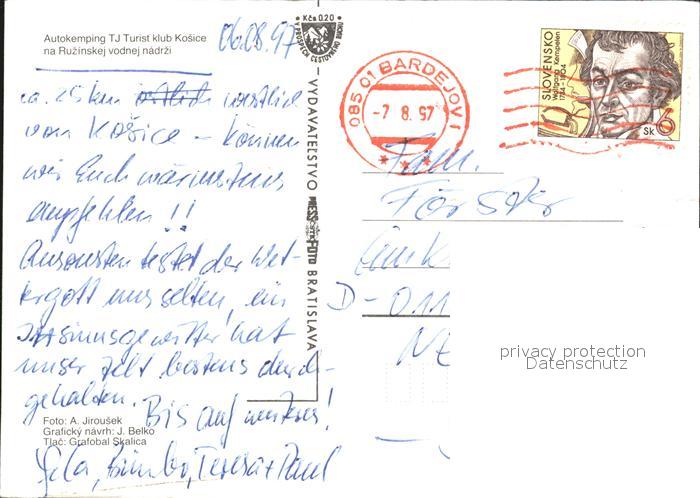 Autokemping TJ Turist klub Košice
na Ružínskej vodnej nádrži
06.08.97
ca. 25 km östlich westlich
von Košice – können
wir Euch wärmstens
empfehlen !!
Ansonsten testet der Wet-
tergott uns selten, ein
hat
unser Zelt bestens durch-
gehalten.
Bis auf weiteres!
Foto: A. Jiroušek
Grafický návrh: J. Belko
Tlač: Grafobal Skalica
Bimbo, Teresa + Paul
Kčs 0.20
V PROSPECH CESTOVNÉHO RUCHU
VYDAVATEĽSTVO
PRESSFOTO
BRATISLAVA
085 01 BARDEJOV 1
-7. 8. 97
SLOVENSKO
Wolfgang Kempelen
1734 – 1804
Sk 6
Fam.
Förster
D-011
privacy protection
Datenschutz